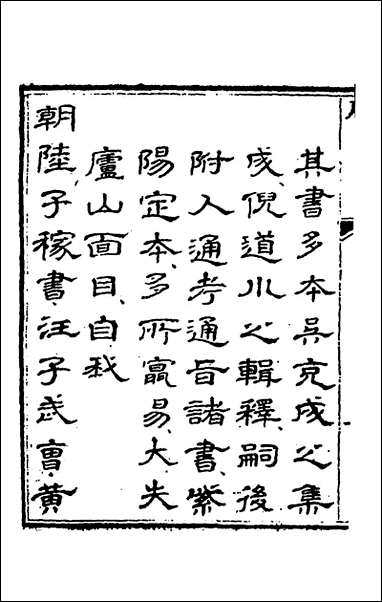 其書多本吳克成之集
成倪道川之輯釋嗣後
附入通考通旨諸書紫
陽定本多所竄易大失
廬山面目自我
朝陸子稼書汪子武曹黃